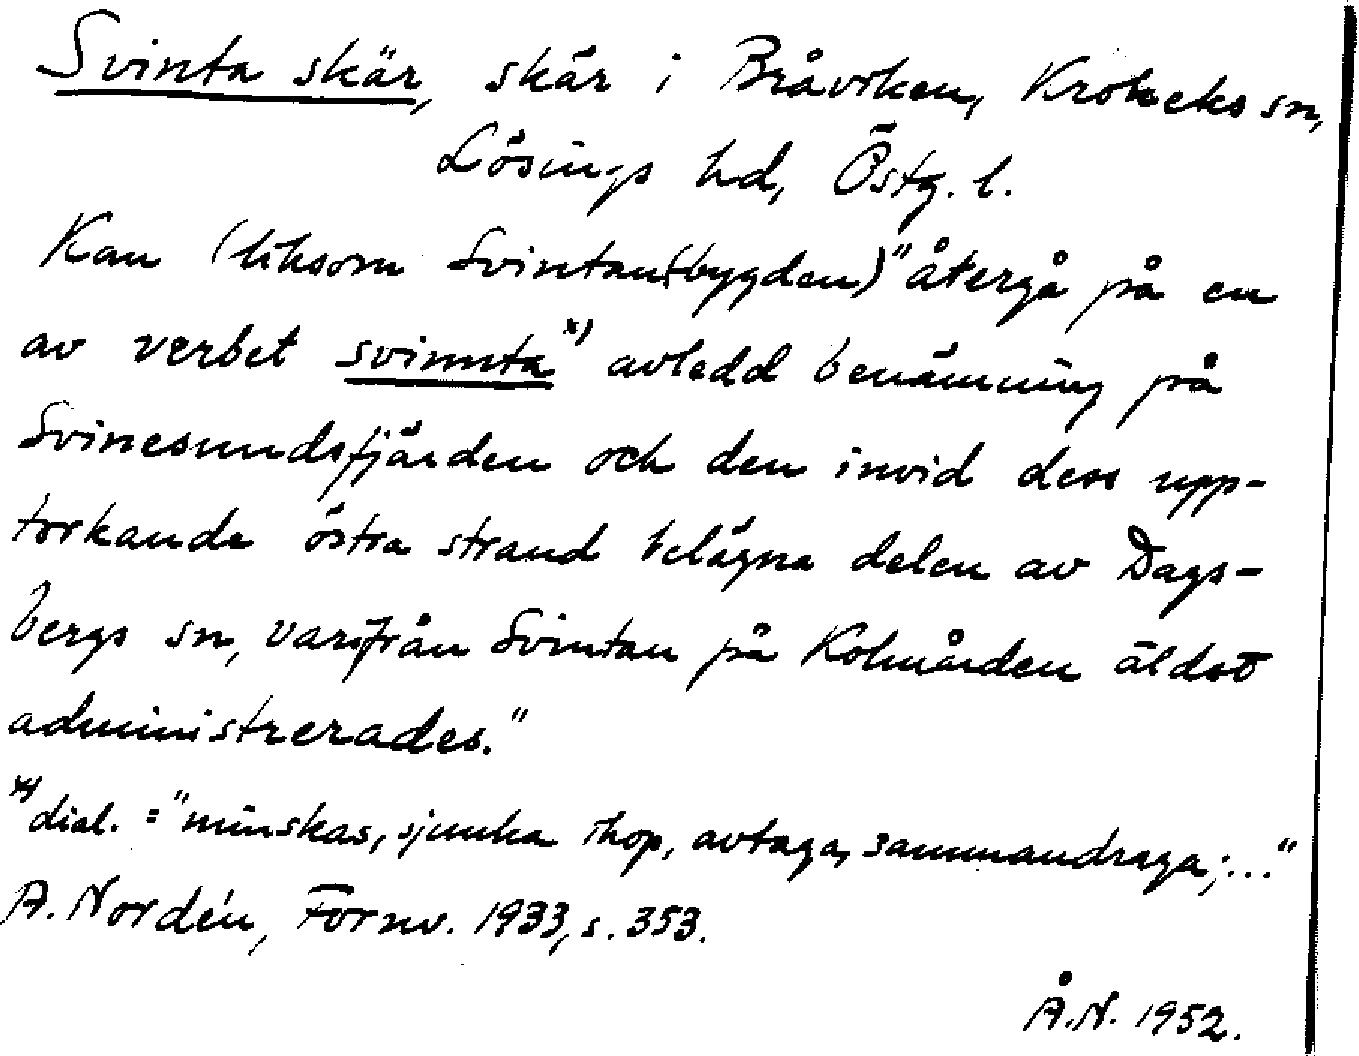 Svinta skär, skär i Bråviken, Krokeks sn,
Lösings hd, Östg. l.
Kan (liksom Svintan(bygden)) "återgå på en
av verbet svinnta x) avledd benämning på
Svinesundsfjärden och den invid dess upp-
torkande östra strand belägna delen av Dags-
bergs sn, varifrån Svintan på Kolmården äldst
administrerades."
x) dial. = "minskas, sjunka ihop, avtaga, sammandraga;..."
A. Nordén, Fornv. 1933, s. 353.
Å.N. 1952.